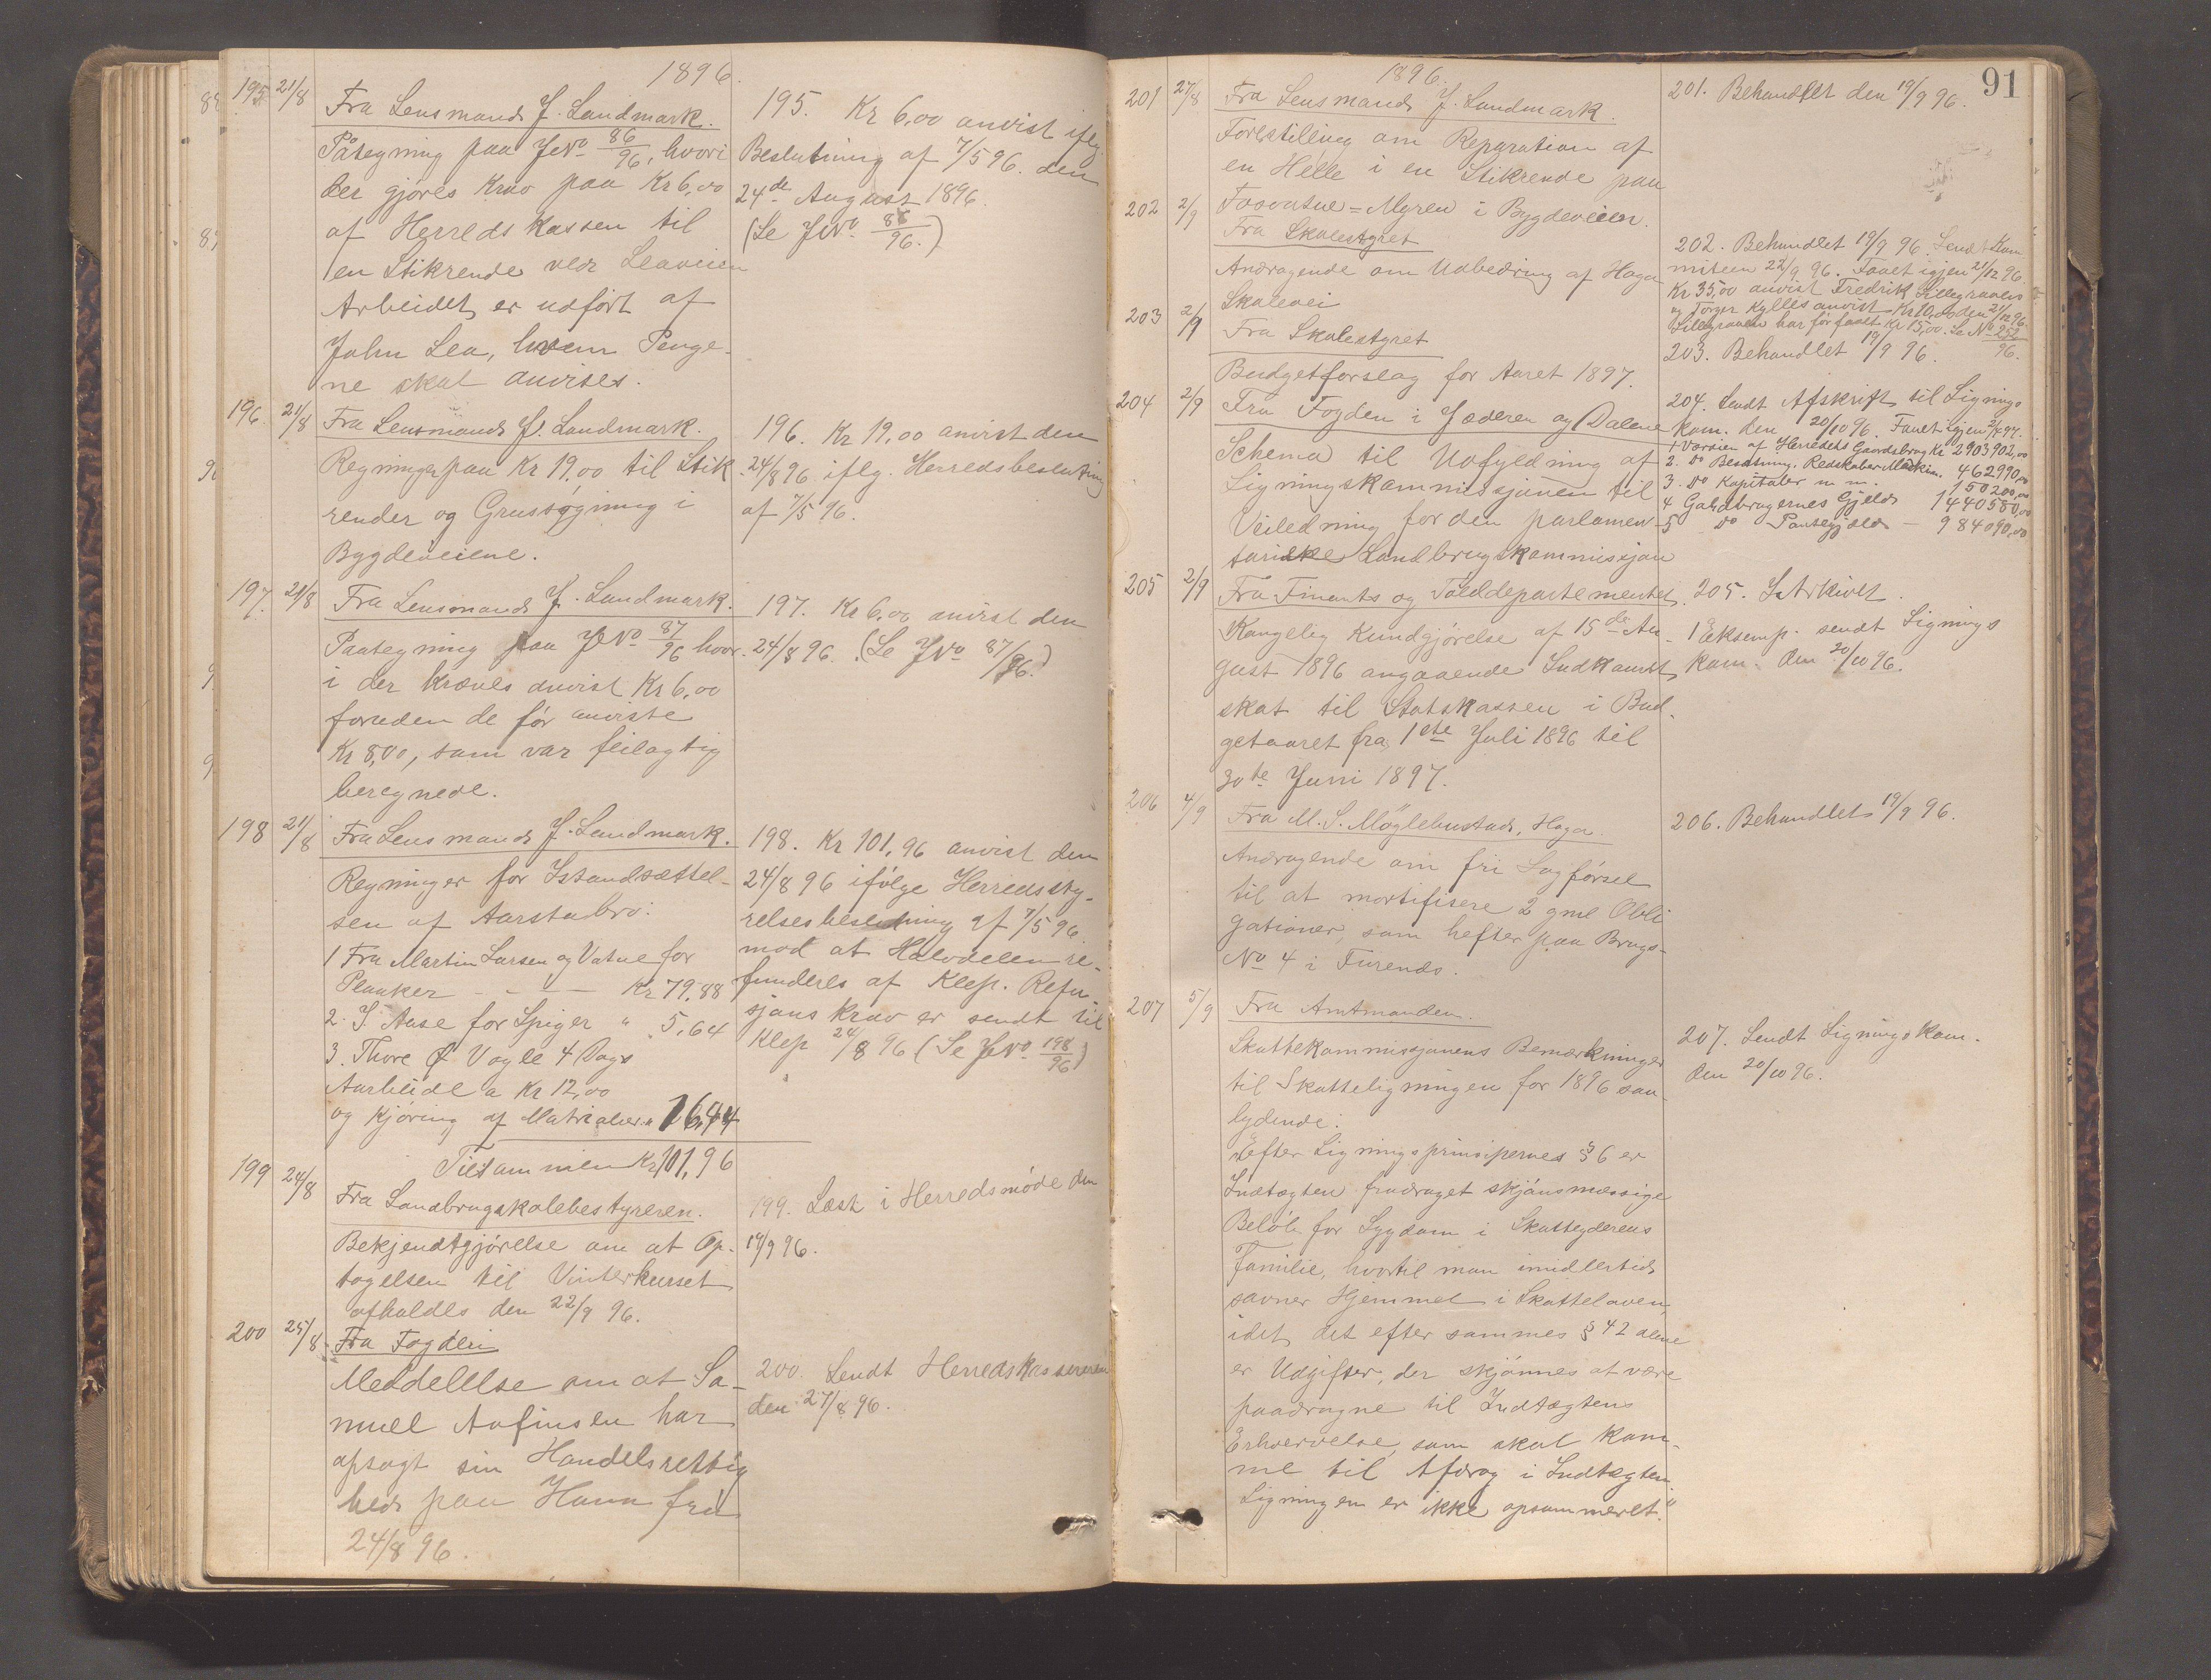 1896.
195 21/8 Fra Lensmand J. Landmark.
Påtegning paa JNo 86/96, hvori
der gjøres Krav paa Kr 6,00
af Herredskassen til
en Stikrende ved Leaveien
Arbeidet er udført af
John Lea, hvem Penge-
ne skal anvises.
195. Kr 6,00 anvist iflg.
Beslutning af 7/5 96. den
24de August 1896.
(Se JNo 86/96.)
196. 21/8 Fra Lensmand J. Landmark.
Regninger paa Kr 19,00 til Stik
render og Grussøgning i
Bygdeveiene.
196. Kr 19,00 anvist den
24/8 96 iflg. Herredsbeslutning
af 7/5 96.
197. 21/8 Fra Lensmand J. Landmark.
Paategning paa JNo 87/96 hvor-
i der kræves anvist Kr 6,00
foruden de før anviste
Kr 8,00, som var feilagtig
beregnede.
197. Kr 6,00 anvist den
24/8 96. (Se JNo 87/96.)
198 21/8 Fra Lensmand J. Landmark.
Regninger for Istandsættel-
sen af Aarstabro:
1 Fra Martin Larsen og Vatne for
Planker - - - Kr 79,88
2. S. Aase for Spiger " 5,64
3. Thore Ø Vagle 4 Dags
Aarbeide a Kr 12,00
og Kjøring af Matrialier " 16,44
Tilsammen Kr 101,96
198. Kr 101,96 anvist den
24/8 96 ifølge Herredssty-
relsesbeslutning af 7/5 96
mod at Halvdelen re-
funderes af Klep. Refu-
sjons krav er sendt til
Klep 24/8 96 (Se JNo 198/96)
199 24/8 Fra Landbrugskolebestyreren.
Bekjendtgjørelse om at Op-
tagelsen til Vinterkurset
afholdes den 22/9 96.
199. Læst i Herredsmøde den
19/9 96.
200 25/8 Fra Fogden
Meddelelse om at Sa-
muel Aafinsen har
opsagt sin Handelsrettig
hed paa Hana fra
24/8 96.
200. Sendt Herredskassereren
den 27/8 96.
91
1896.
201 27/8 Fra Lensmand J. Landmark.
Forestilling om Reparation af
en Helle i en Stikrende paa
Fosvatne=Myren i Bygdeveien.
201. Behandlet den 19/9 96.
202 2/9 Fra Skolestyret
Andragende om Udbedring af Hogn
Skolevei
202. Behandlet 19/9 96. Sendt Kom
miteen 22/9 96. Faaet igjen 21/12 96.
Kr 35,00 anvist Fredrik Lillegraven
og Torger Kylles anvist Kr 10,00 den 21/12 96.
Lillegraven har før faaet Kr 15,00. Se No 252/96.
203 2/9 Fra Skolestyret
Budgetforslag for Aaret 1897.
203. Behandlet 19/9 96.
204 2/9 Fra Fogden i Jæderen og Dalene
Schema til Udfyldning af
Ligningskommissjonen til
Veiledning for den parlamen-
tariske Landbrugskommissjon
204. Sendt Afskrift til Lignings
kom. den 20/10 96. Faaet igjen 2/4 97.
1 Værdien af Herredets Gaardsbrug Kr 2903902,00
2. Do Besætning, Redskaber Maskin. 462990,00
3. Do Kapitaler m m. 150200,00
4 Gaardbrugernes Gjeld 1440580,00
5 Do Pantegjæld - 984090,00
205 2/9 Fra Finants og Tolddepartementet.
Kongelig Kundgjørelse af 15de Au-
gust 1896 angaaende Indkomst
skat til Statskassen i Bud-
getaaret fra 1ste Juli 1896 til
30te Juni 1897.
205. I Arkivet.
1 Eksemp. sendt Lignings
kom. den 20/10 96.
206 4/9 Fra M. S. Møglebustad, Hogn.
Andragende om fri Sagførsel
til at mortifisere 2 gml Obli
gationer, som hefter paa Brugs-
No 4 i Türends.
206. Behandlet 19/9 96.
207 5/9 Fra Amtmanden.
Skattekommissjonens Bemærkninger
til Skatteligningen for 1896 saa-
lydende:
"Efter Ligningsprinsipernes § 6 er
Indtægten fradraget skjønsmæssige
Beløb for Sygdom i Skatteyderens
Familie, hvortil man imidlertid
savner Hjemmel i Skatteloven,
idet det efter sammes § 42 alene
er Udgifter, der skjønnes at være
paadragne til Indtægtens
Erhvervelse, som skal kom-
me til Afdrag i Indtægten.
Ligningen er ikke opsummeret."
207. Sendt Ligningskom.
den 20/10 96.